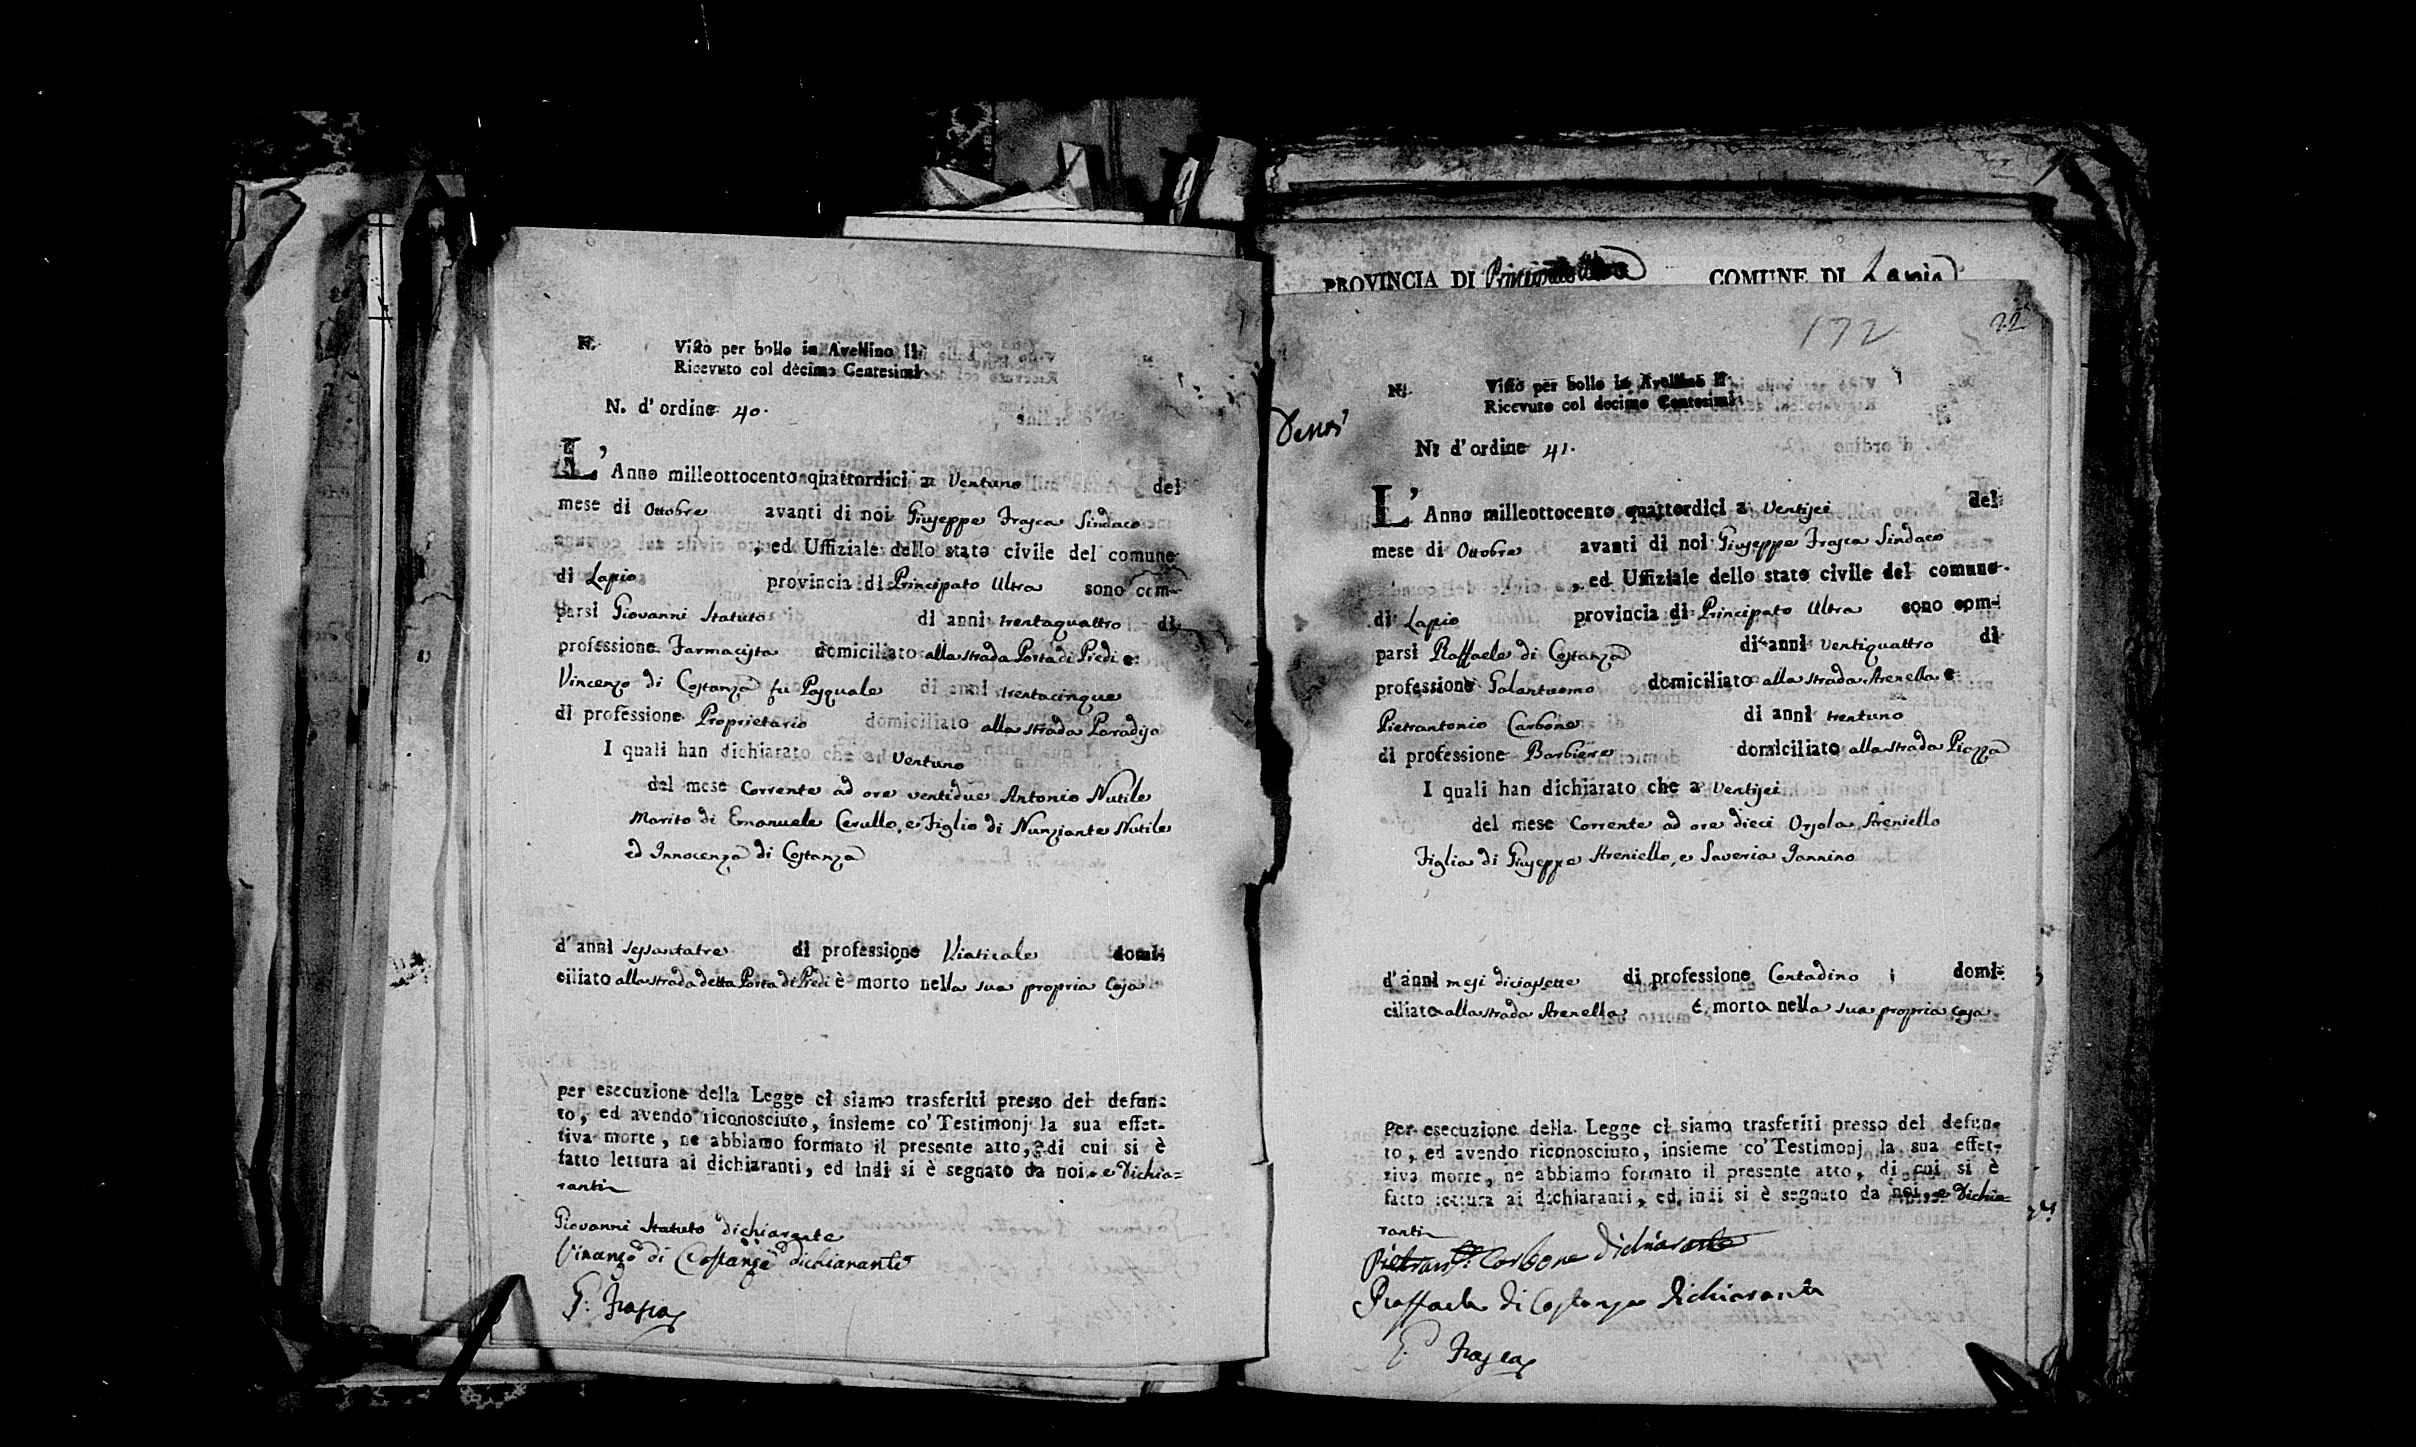 N. Visto per bollo in Avellino il
Ricevuto col decimo Centesimi
N. d'ordine 40.
L'Anno milleottocento quattordici a Ventuno del
mese di Ottobre avanti di noi Giuseppe Frasca Sindaco
, ed Uffiziale dello stato civile del comune
di Lapio provincia di Principato Ultra sono com-
parsi Giovanni Statuto di anni trentaquattro di
professione Farmacista domiciliato alla strada Porta di Piedi e
Vincenzo di Costanza fu Pasquale di anni trentacinque
di professione Proprietario domiciliato alla strada Paradiso
I quali han dichiarato che a Ventuno
del mese Corrente ad ore ventidue Antonio Nutile
Marito di Emanuele Cerullo, e Figlio di Nunziante Nutile
ed Innocenza di Costanza
d'anni sessantatre di professione Viaticale domi-
ciliato alla strada detta Porta di Piedi è morto nella sua propria Casa
per esecuzione della Legge ci siamo trasferiti presso del defun-
to, ed avendo riconosciuto, insieme co' Testimonj la sua effet-
tiva morte, ne abbiamo formato il presente atto, di cui si è
fatto lettura ai dichiaranti, ed indi si è segnato da noi, e dichia=
ranti
Giovanni Statuto dichiarante
Vinanzo di Costanza dichiarante
G. Frasca
PROVINCIA DI Principato COMUNE DI Lapio
172 22
N. Visto per bollo in Avellino il
Ricevuto col decimo Centesimi
N. d'ordine 41.
L'Anno milleottocento quattordici a Ventisei del
mese di Ottobre avanti di noi Giuseppe Frasca Sindaco
, ed Uffiziale dello stato civile del comune
di Lapio provincia di Principato Ultra sono com-
parsi Raffaele di Costanza di anni ventiquattro di
professione Galantuomo domiciliato alla strada Arenella e
Pietrantonio Carbone di anni trentuno
di professione Barbiere domiciliato alla strada Piazza
I quali han dichiarato che a Ventisei
del mese Corrente ad ore dieci Orsola Areniello
Figlia di Giuseppe Areniello, e Saveria Iannino
d'anni mesi diciassette di professione Contadino domi-
ciliato alla strada Arenella è morta nella sua propria casa
per esecuzione della Legge ci siamo trasferiti presso del defun-
to, ed avendo riconosciuto, insieme co' Testimonj la sua effet-
tiva morte, ne abbiamo formato il presente atto, di cui si è
fatto lettura ai dichiaranti, ed indi si è segnato da noi, e dichia=
ranti
Pietrant. Carbone dichiarante
Raffaele di Costanza dichiarante
G. Frasca